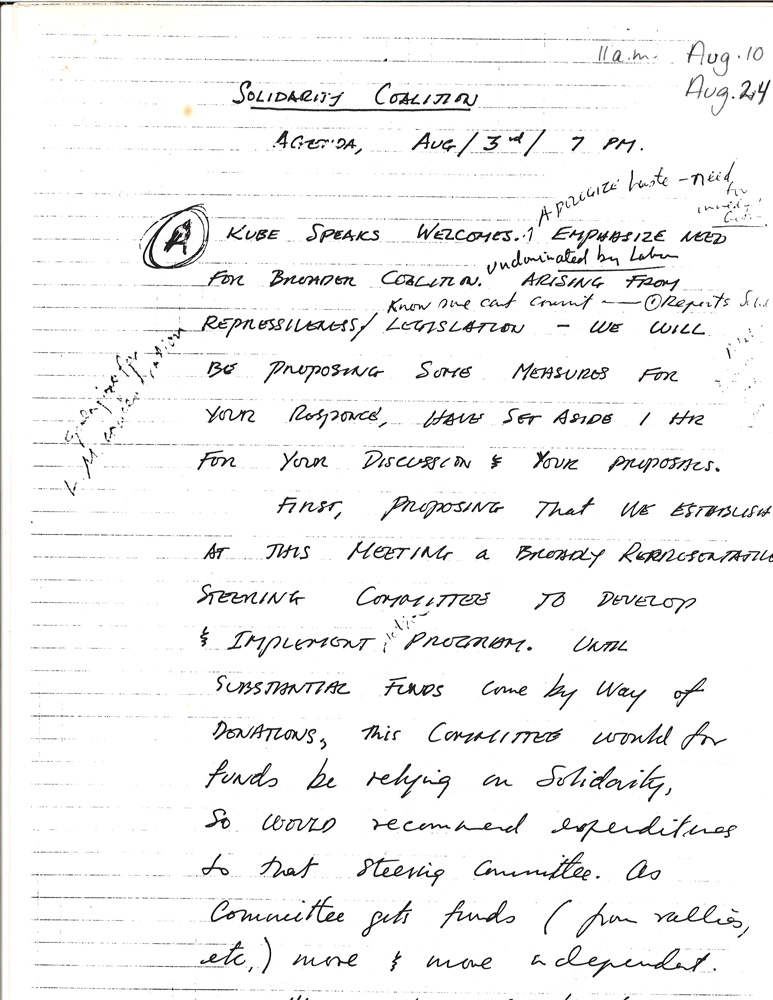 11 a.m. Aug. 10
Aug. 24
SOLIDARITY COALITION
AGENDA, AUG/3rd/ 7 PM.
APOLOGIZE haste - need
for
KUBE SPEAKS WELCOMES. EMPHASIZE NEED
undominated by Labour
FOR BROADER COALITION. ARISING FROM
Know some can't commit — ① Reports
REPRESSIVENESS/LEGISLATION - WE WILL
BE PROPOSING SOME MEASURES FOR
YOUR RESPONCE, HAVE SET ASIDE 1 HR
FOR YOUR DISCUSSION & YOUR PROPOSALS.
Apologize for
FIRST, PROPOSING THAT WE ESTABLISH
AT THIS MEETING A BROADLY REPRESENTATIVE
STEERING COMMITTEE TO DEVELOP
& IMPLEMENT PROGRAM. UNTIL
SUBSTANTIAL FUNDS come by way of
DONATIONS, this COMMITTEE would for
funds be relying on Solidarity,
So WOULD recommend expenditures
to that Steering Committee. As
Committee gets funds (from rallies,
etc,) more & more independent.